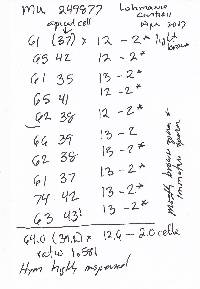 MU 249877 Lohmanni
Cantrall
Apr 2017
apical cell
61 (37) x 12 - 2* light brown
65 42 12 - 2*
61 35 13 - 2*
65 41 12 - 2*
62 38 12 - 2*
66 39 13 - 2
62 38 13 - 2*
61 37 13 - 2*
74 42 13 - 2*
63 43! 13 - 2*
mostly brown spores *
immature spores
64.0 (39.2) x 12.6 - 2.0 cells
ratio 1:5.81
Hym highly inspersed